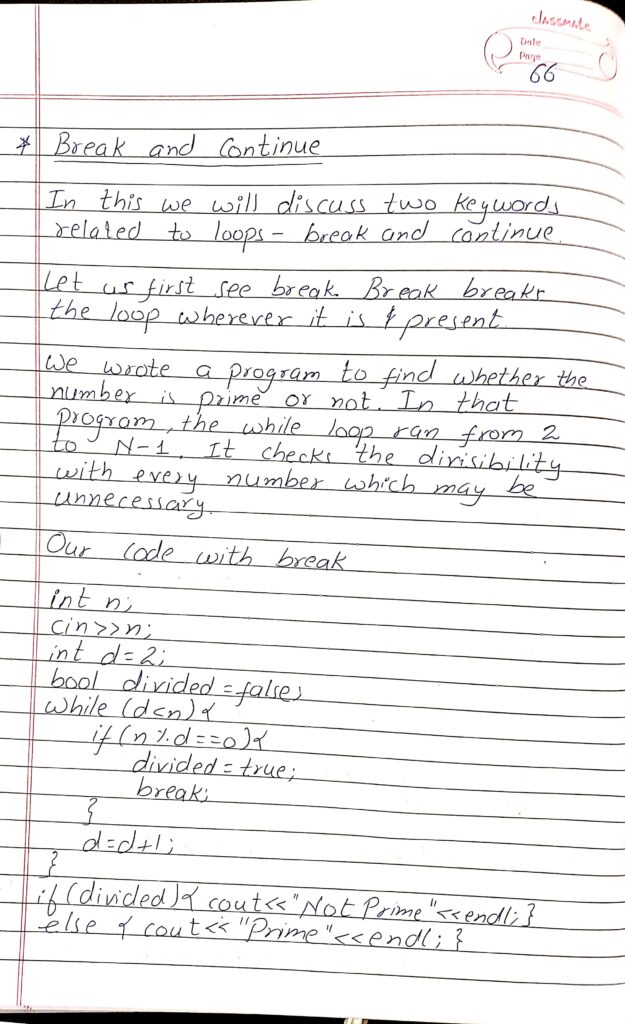 classmate
Date
Page
66
* Break and Continue
In this we will discuss two keywords
related to loops - break and continue.
Let us first see break. Break breaks
the loop wherever it is present.
We wrote a program to find whether the
number is prime or not. In that
program, the while loop ran from 2
to N-1. It checks the divisibility
with every number which may be
unnecessary.
Our code with break
int n;
cin>>n;
int d=2;
bool divided=false;
while (d<n){
if(n%d==0){
divided=true;
break;
}
d=d+1;
}
if(divided){ cout<<"Not Prime"<<endl; }
else { cout<<"Prime"<<endl; }